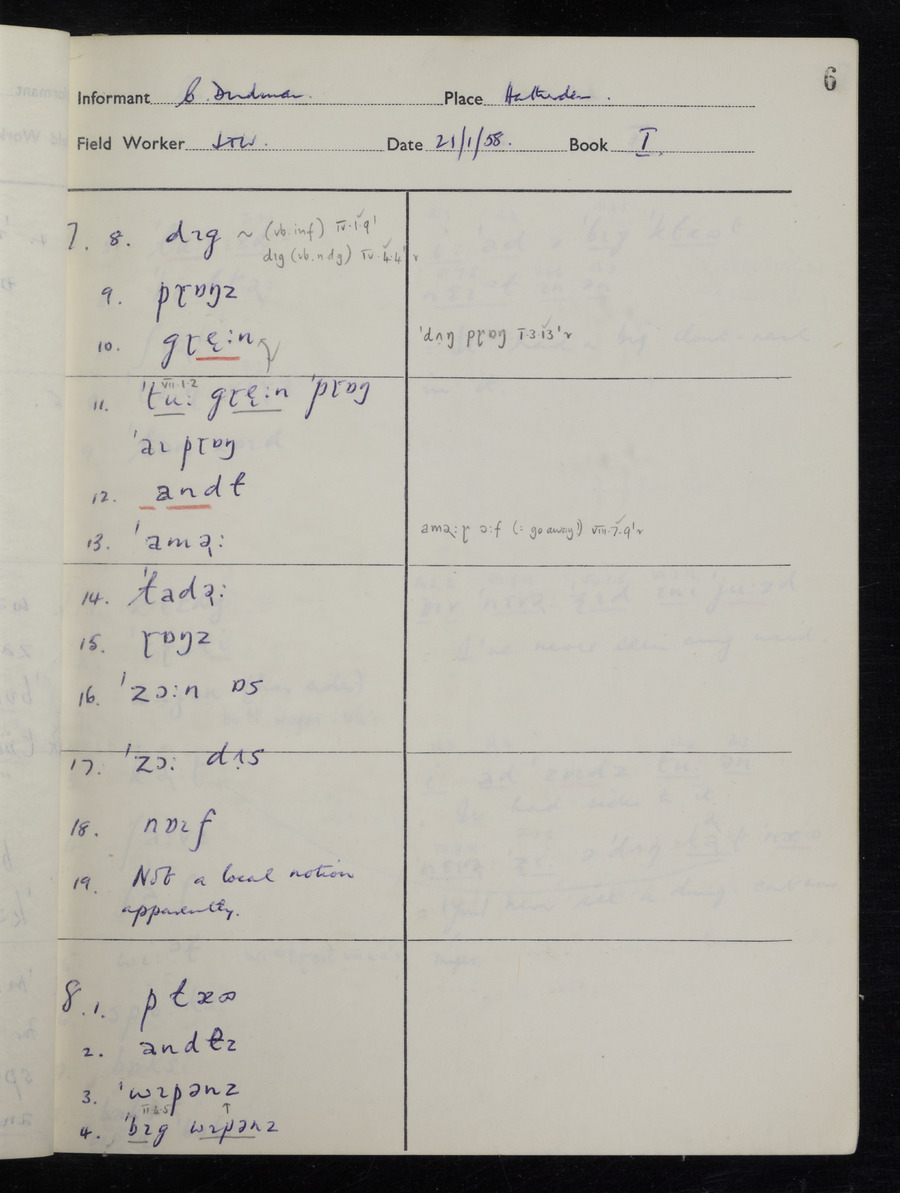 6
Informant B. Dudman. Place Hatherden.
Field Worker JTW. Date 21/1/58. Book I.
7. 8. dɪg ~ (vb. inf) IV·1·9'
dɪg (vb. n dg) IV·4·4' r
9. pɽɒŋz
10. gɽę:n
'dʌŋ pɽɒŋ I·3·13' r
VII·1·2
11. 'tu: gɽę:n 'pɽɒŋ
'aɪ pɽɒŋ
12. andɫ
13. 'amə̢:
amə̢:ɽ ɔ:f (= go away!) VIII·7·9' r
14. 'tadə̢:
15. ɽɒŋz
16. 'zɔ:n ɒs
17. 'zɔ: dʌs
18. nɒɪf
19. Not a local notion
apparently.
8. 1.
2. andɫz
3. 'wɪpənz
4. 'bɪg wɪpənz